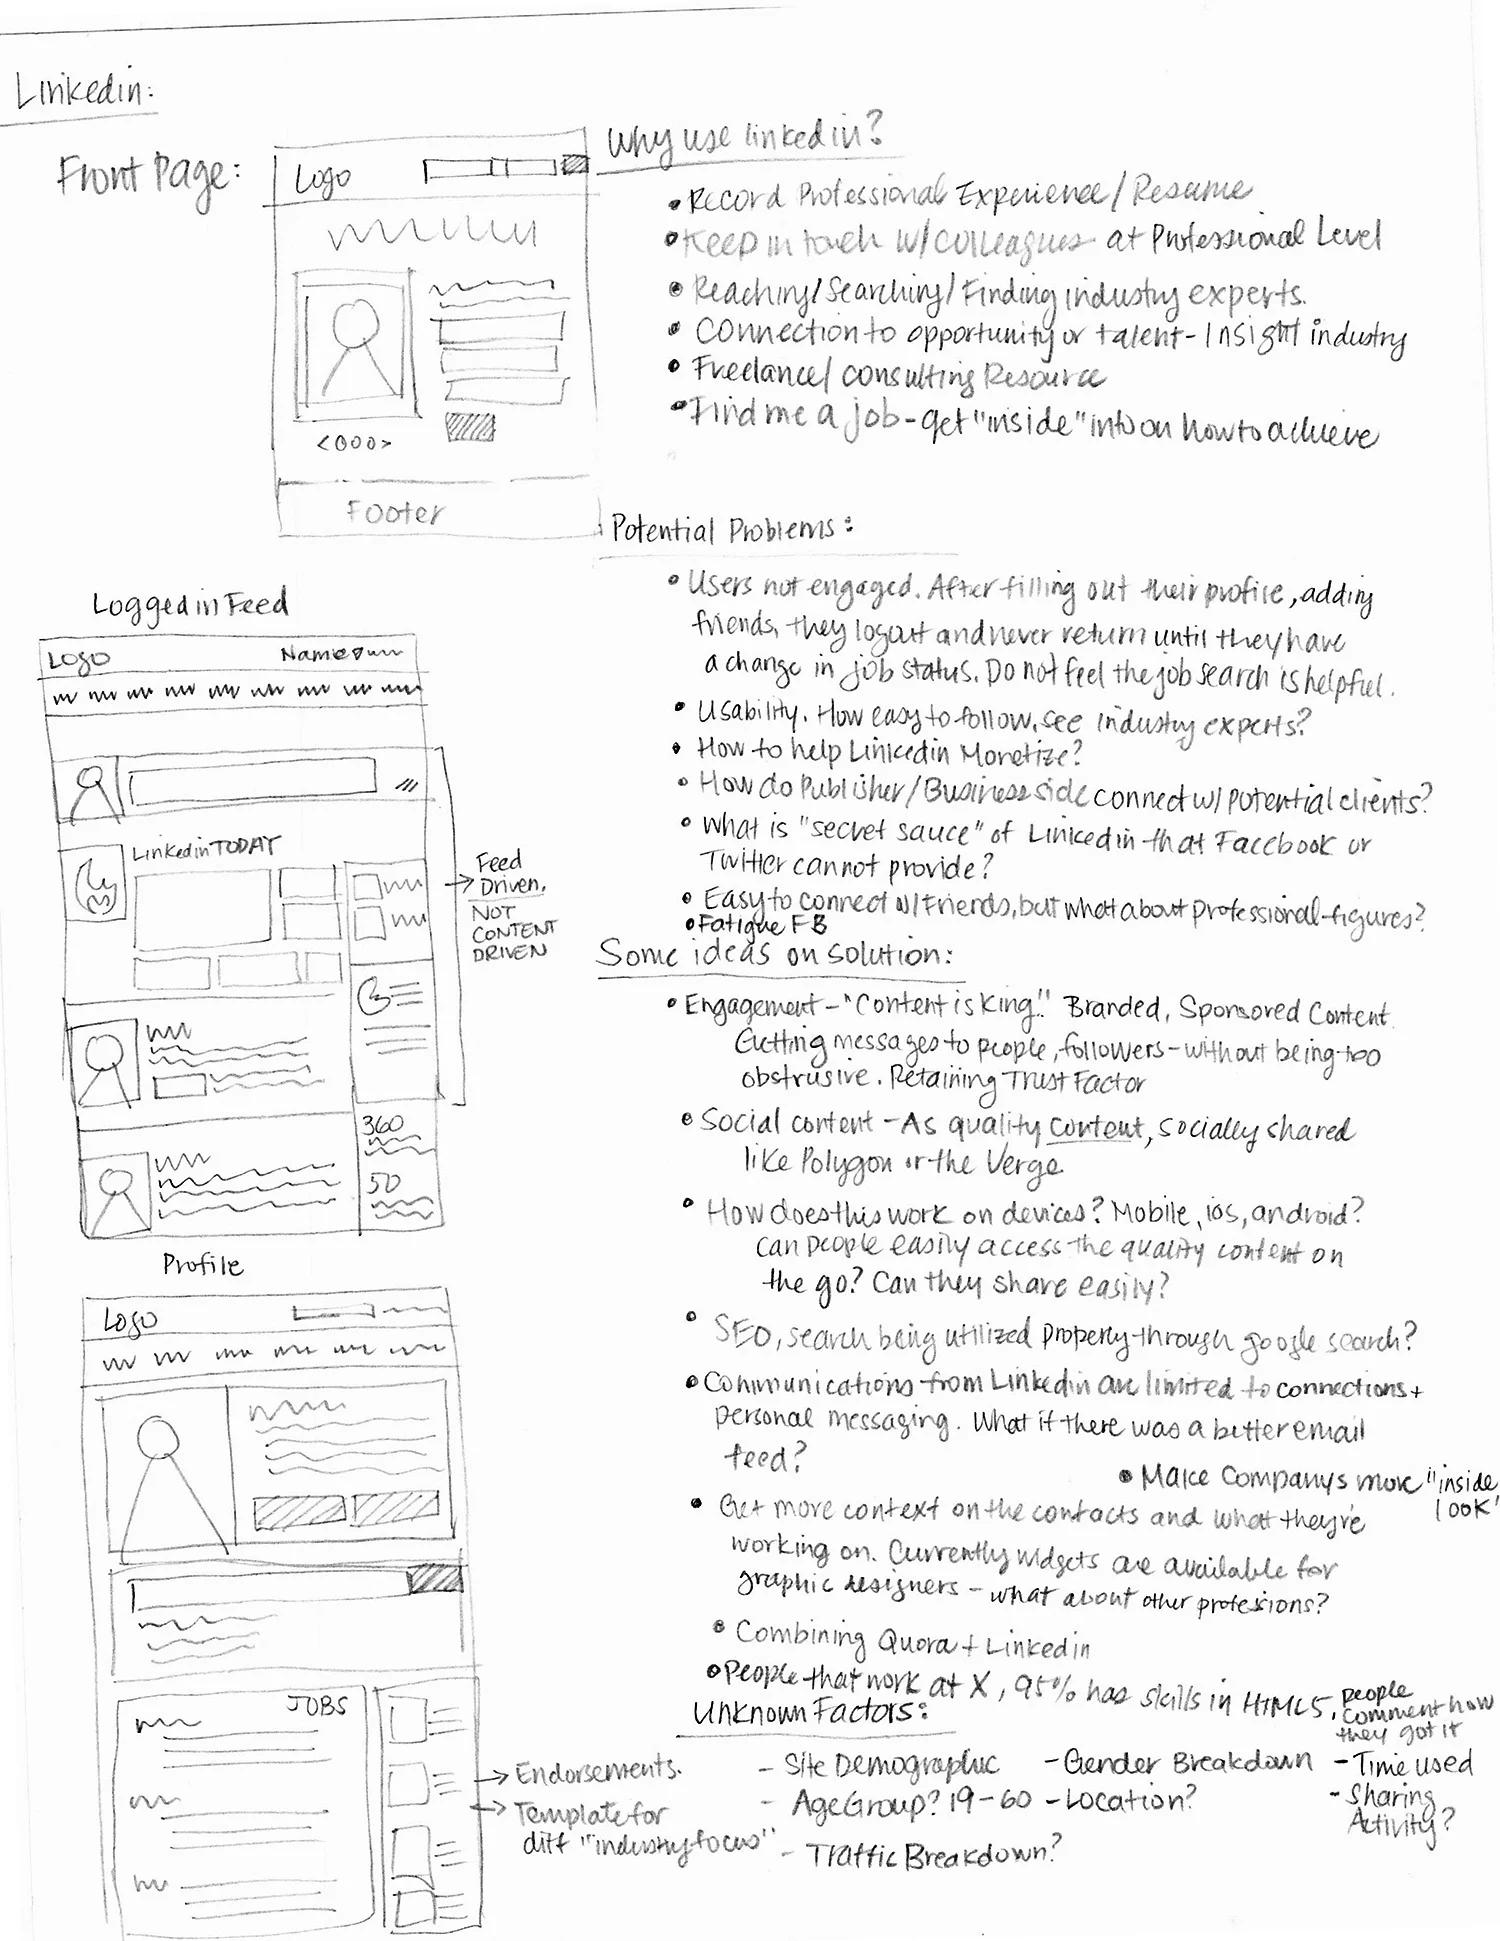 Linkedin:
Front Page:
Logo
<000>
Footer
Why use linkedin?
• Record Professional Experience/Resume
• Keep in touch w/colleagues at Professional Level
• Reaching/Searching/Finding industry experts.
• Connection to opportunity or talent - Insight industry
• Freelance/consulting Resource
• Find me a job - get "inside" info on how to achieve
Potential Problems:
• Users not engaged. After filling out their profile, adding
friends, they logout and never return until they have
a change in job status. Do not feel the job search is helpful.
• Usability. How easy to follow, see industry experts?
• How to help Linkedin Monetize?
• How do Publisher/Business side connect w/ potential clients?
• What is "secret sauce" of Linkedin that Facebook or
Twitter cannot provide?
• Easy to connect w/Friends, but what about professional figures?
• Fatigue FB
Logged in Feed
Logo
Name
Linkedin TODAY
360
50
Feed
Driven,
NOT
CONTENT
DRIVEN
Some ideas on solution:
• Engagement - "Content is King!" Branded, Sponsored Content
Getting messages to people, followers - without being too
obstrusive. Retaining Trust Factor
• Social content - As quality content, socially shared
like Polygon or the Verge
• How does this work on devices? Mobile, ios, android?
Can people easily access the quality content on
the go? Can they share easily?
• SEO, search being utilized properly through google search?
• Communications from Linkedin are limited to connections +
personal messaging. What if there was a better email
feed?
• Make Companys more "inside
look"
• Get more context on the contacts and what they're
working on. Currently widgets are available for
graphic designers - what about other professions?
• Combining Quora + Linkedin
• People that work at X, 95% has skills in HTML5, people
comment how
they got it
Profile
Logo
JOBS
→ Endorsements.
→ Template for
diff "industry focus"
Unknown Factors:
- Site Demographic
- Gender Breakdown
- Time used
- Age Group? 19-60
- Location?
- Sharing
Activity?
- Traffic Breakdown?